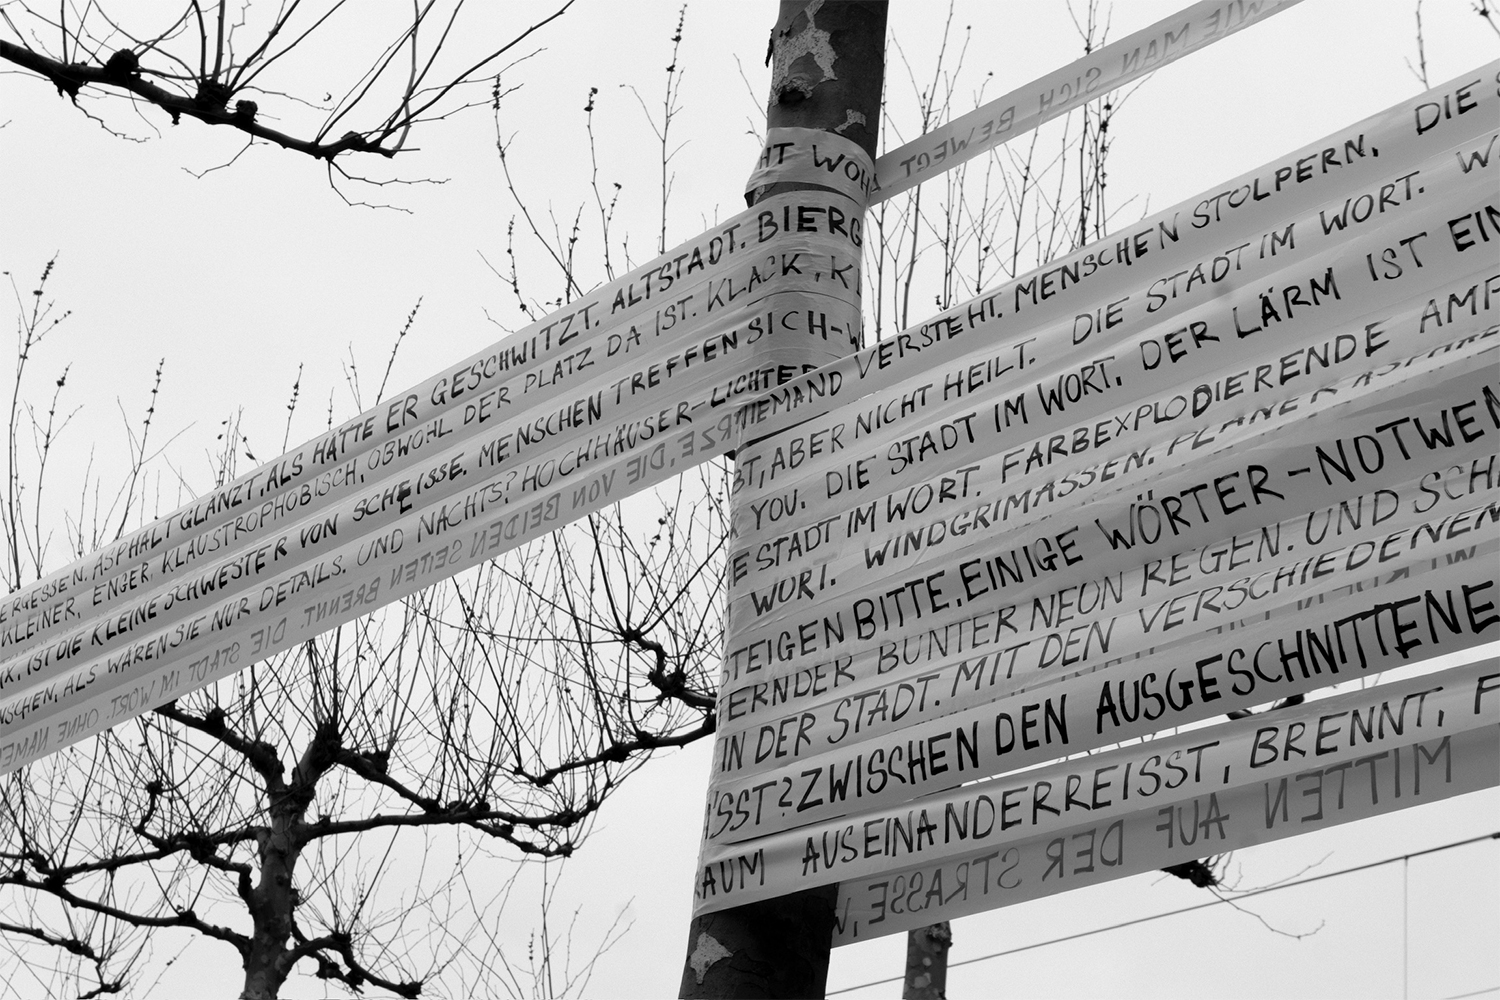 WIE MAN SICH BEWEGT
HT WOH
ERGESSEN. ASPHALT GLÄNZT, ALS HÄTTE ER GESCHWITZT. ALTSTADT. BIERG
KLEINER, ENGER, KLAUSTROPHOBISCH, OBWOHL DER PLATZ DA IST. KLACK, K
IST DIE KLEINE SCHWESTER VON SCHEISSE. MENSCHEN TREFFEN SICH-
NSCHEN, ALS WÄREN SIE NUR DETAILS. UND NACHTS? HOCHHÄUSER-LICHTER
OHNE NAMEN
DIE STADT IM WORT.
DIE VON BEIDEN SEITEN BRENNT.
NIEMAND VERSTEHT. MENSCHEN STOLPERN. DIE S
ST, ABER NICHT HEILT. DIE STADT IM WORT. W
YOU. DIE STADT IM WORT. DER LÄRM IST EIN
E STADT IM WORT. FARBEXPLODIERENDE AMP
WORT. WINDGRIMASSEN.
STEIGEN BITTE, EINIGE WÖRTER-NOTWEN
ERNDER BUNTER NEON REGEN. UND SCH
IN DER STADT. MIT DEN VERSCHIEDENEN
SST? ZWISCHEN DEN AUSGESCHNITTENE
RAUM AUSEINANDERREISST, BRENNT, F
MITTEN AUF DER STRASSE, W